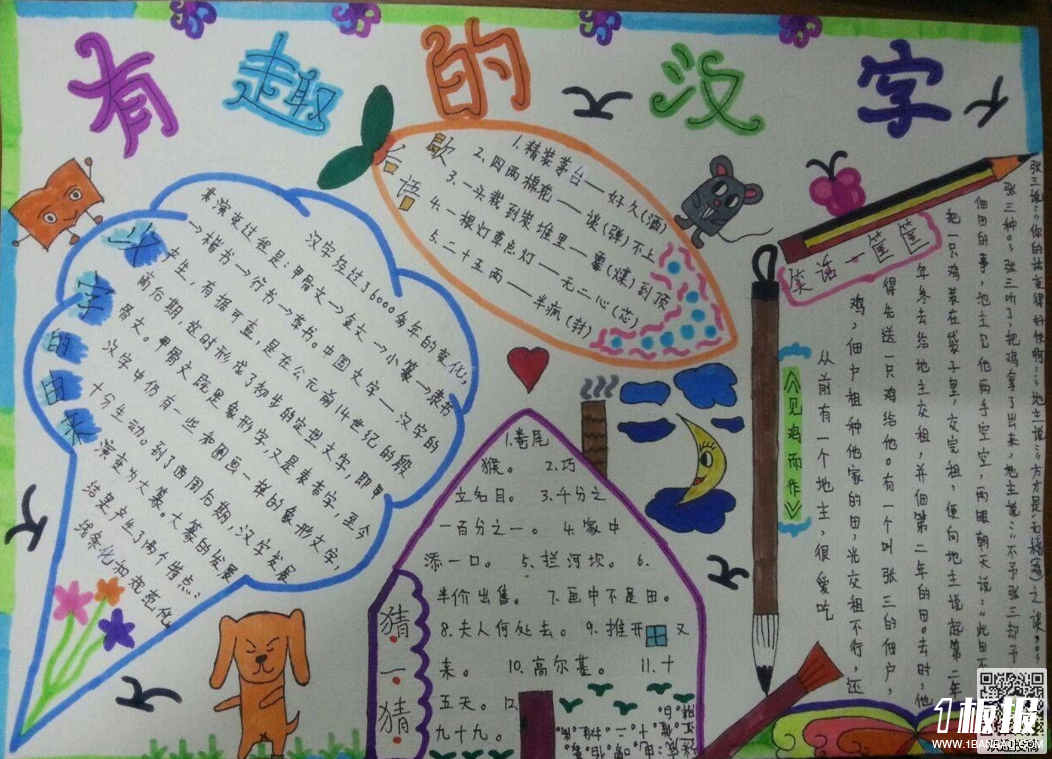 有趣的汉字
汉字的由来
汉字经过了6000多年的变化,
其演变过程是:甲骨文→金文→小篆→隶书
→楷书→行书→草书。中国文字——汉字的
产生,有据可查,是在公元前14世纪的殷
商后期,这时形成了初步的定型文字,即甲
骨文。甲骨文既是象形字,又是表音字,至今
汉字中仍有一些和图画一样的象形文字,
十分生动。到了西周后期,汉字发展
演变为大篆。大篆的发展
结果产生了两个特点:
线条化和规范化
歇后语
1.精装茅台——好久(酒)
2.四两棉花——谈(弹)不上
3.一头栽到炭堆里——霉(煤)到顶
4.一根灯草点灯——无二心(芯)
5.二十五两——半疯(封)
猜一猜
1.卷尾
猴。 2.巧
立名目。 3.千分之
一百分之一。 4.家中
添一口。 5.拦河坎。 6.
半价出售。 7.画中不是田。
8.夫人何处去。 9.推开 又
来。 10.高尔基。 11.十
五天。 12
九十九。
笑话一箩筐
《见鸡而作》
从前有一个地主,很爱吃
鸡,佃户租种他家的田,光交租不行,还
得先送一只鸡给他。有一个叫张三的佃户,
年冬去给地主交租,并佃第二年的田。去时,他
把一只鸡装在袋子里,交完租,便向地主说起第二年
佃田的事,地主见他两手空空,两眼朝天说:“此田不
张三种。”张三听了,把鸡拿了出来,地主说:“不予张三却予
张三说:“你的话变得好快啊!”地主说:“方才是‘无稽(鸡)之谈,
1板报
WWW.1BANBAO.COM
欢迎投稿